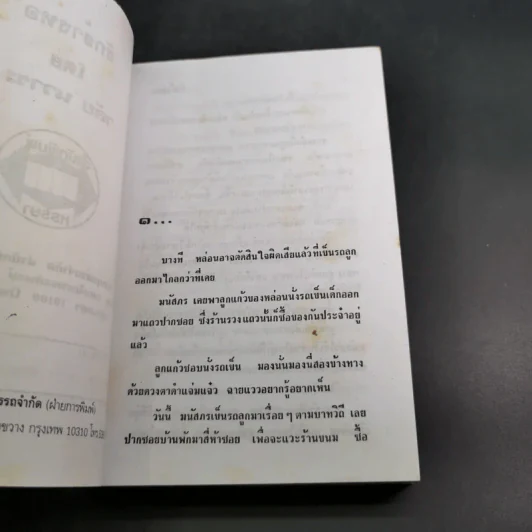 ๑...
บางที หล่อนอาจตัดสินใจผิดเสียแล้วที่เข็นรถลูก
ออกมาไกลกว่าที่เคย
มนัสภร เคยพาลูกแก้วของหล่อนนั่งรถเข็นเด็กออก
มาแถวปากซอย ซึ่งร้านรวงแถวนั้นก็ซื้อของกันประจำอยู่
แล้ว
ลูกแก้วชอบนั่งรถเข็น มองนั่นมองนี่สองข้างทาง
ด้วยดวงตาดำแจ่มแจ๋ว ฉายแววอยากรู้อยากเห็น
วันนี้ มนัสภรเข็นรถลูกมาเรื่อย ๆ ตามบาทวิถี เลย
ปากซอยบ้านพักมาสี่ห้าซอย เพื่อจะแวะร้านขนม ซื้อ
รรถจำกัด (ฝ่ายการพิมพ์)
ขวาง กรุงเทพ 10310